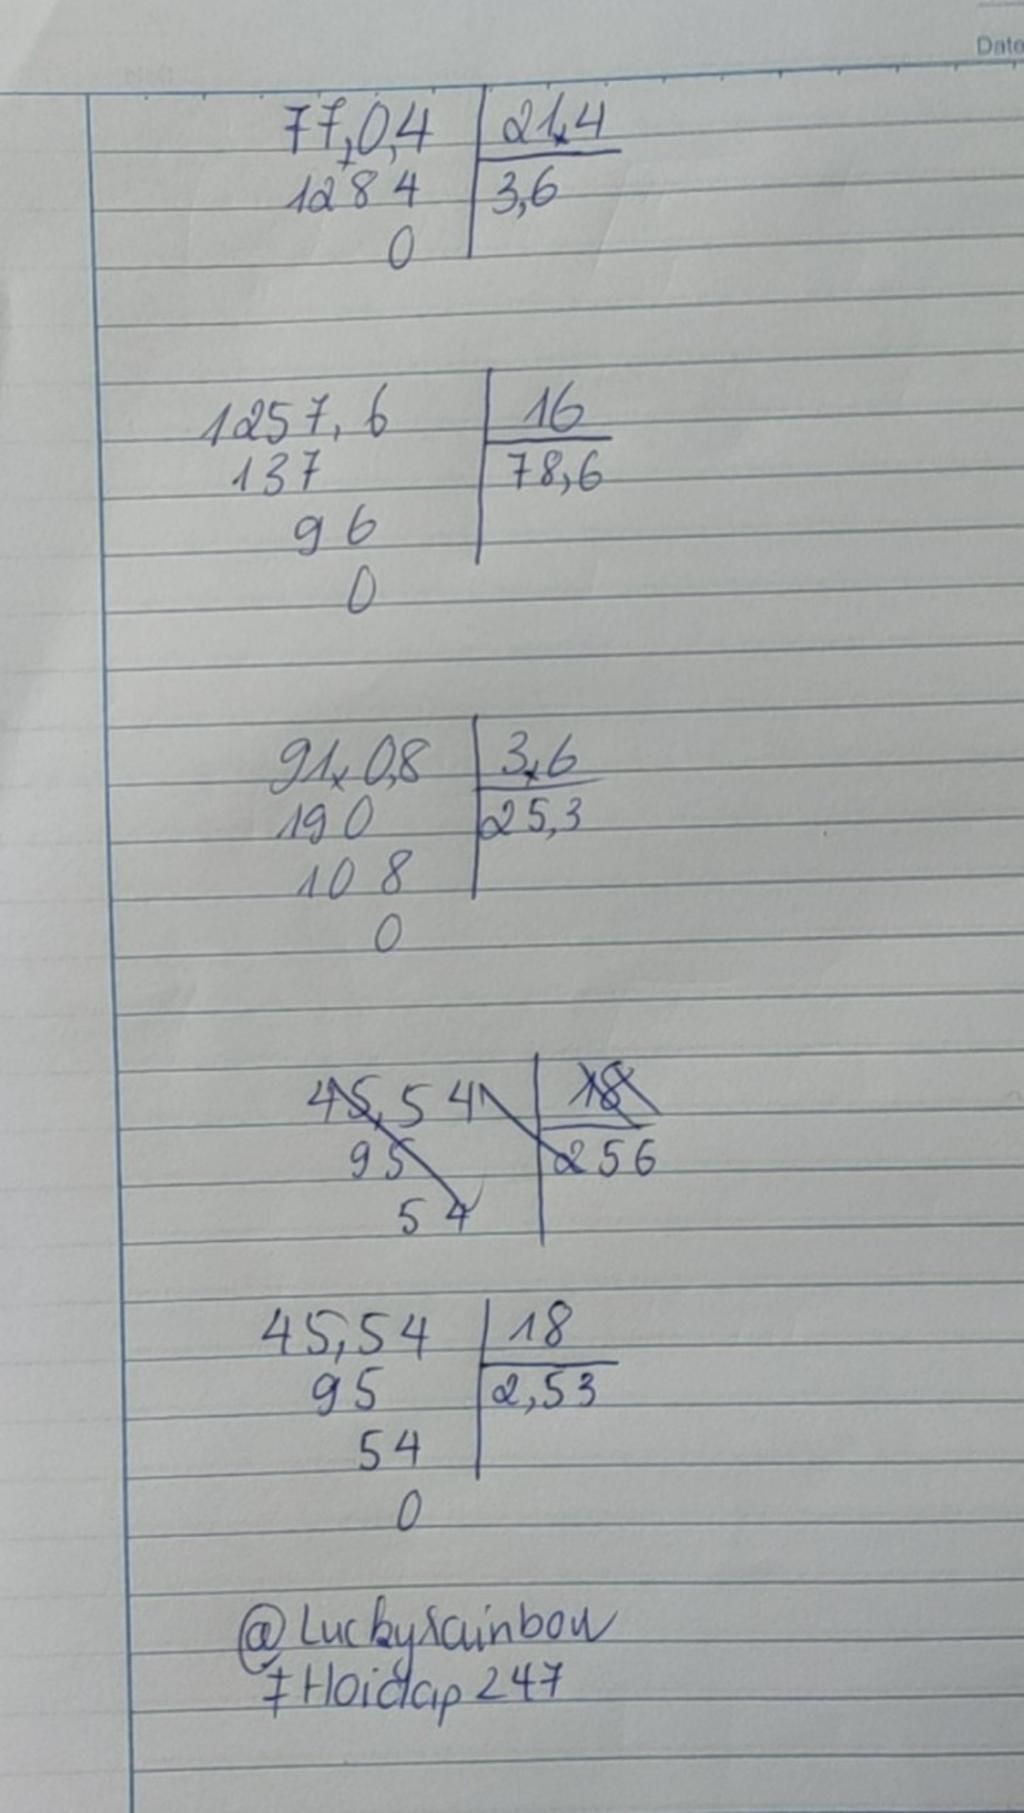 Date
77,0,4 21,4
1284 3,6
0
1257,6 16
137 78,6
96
0
91,0,8 3,6
190 25,3
108
0
45,54 18
95 256
54
45,54 18
95 2,53
54
0
@Luckyrainbow
#Hoidap247